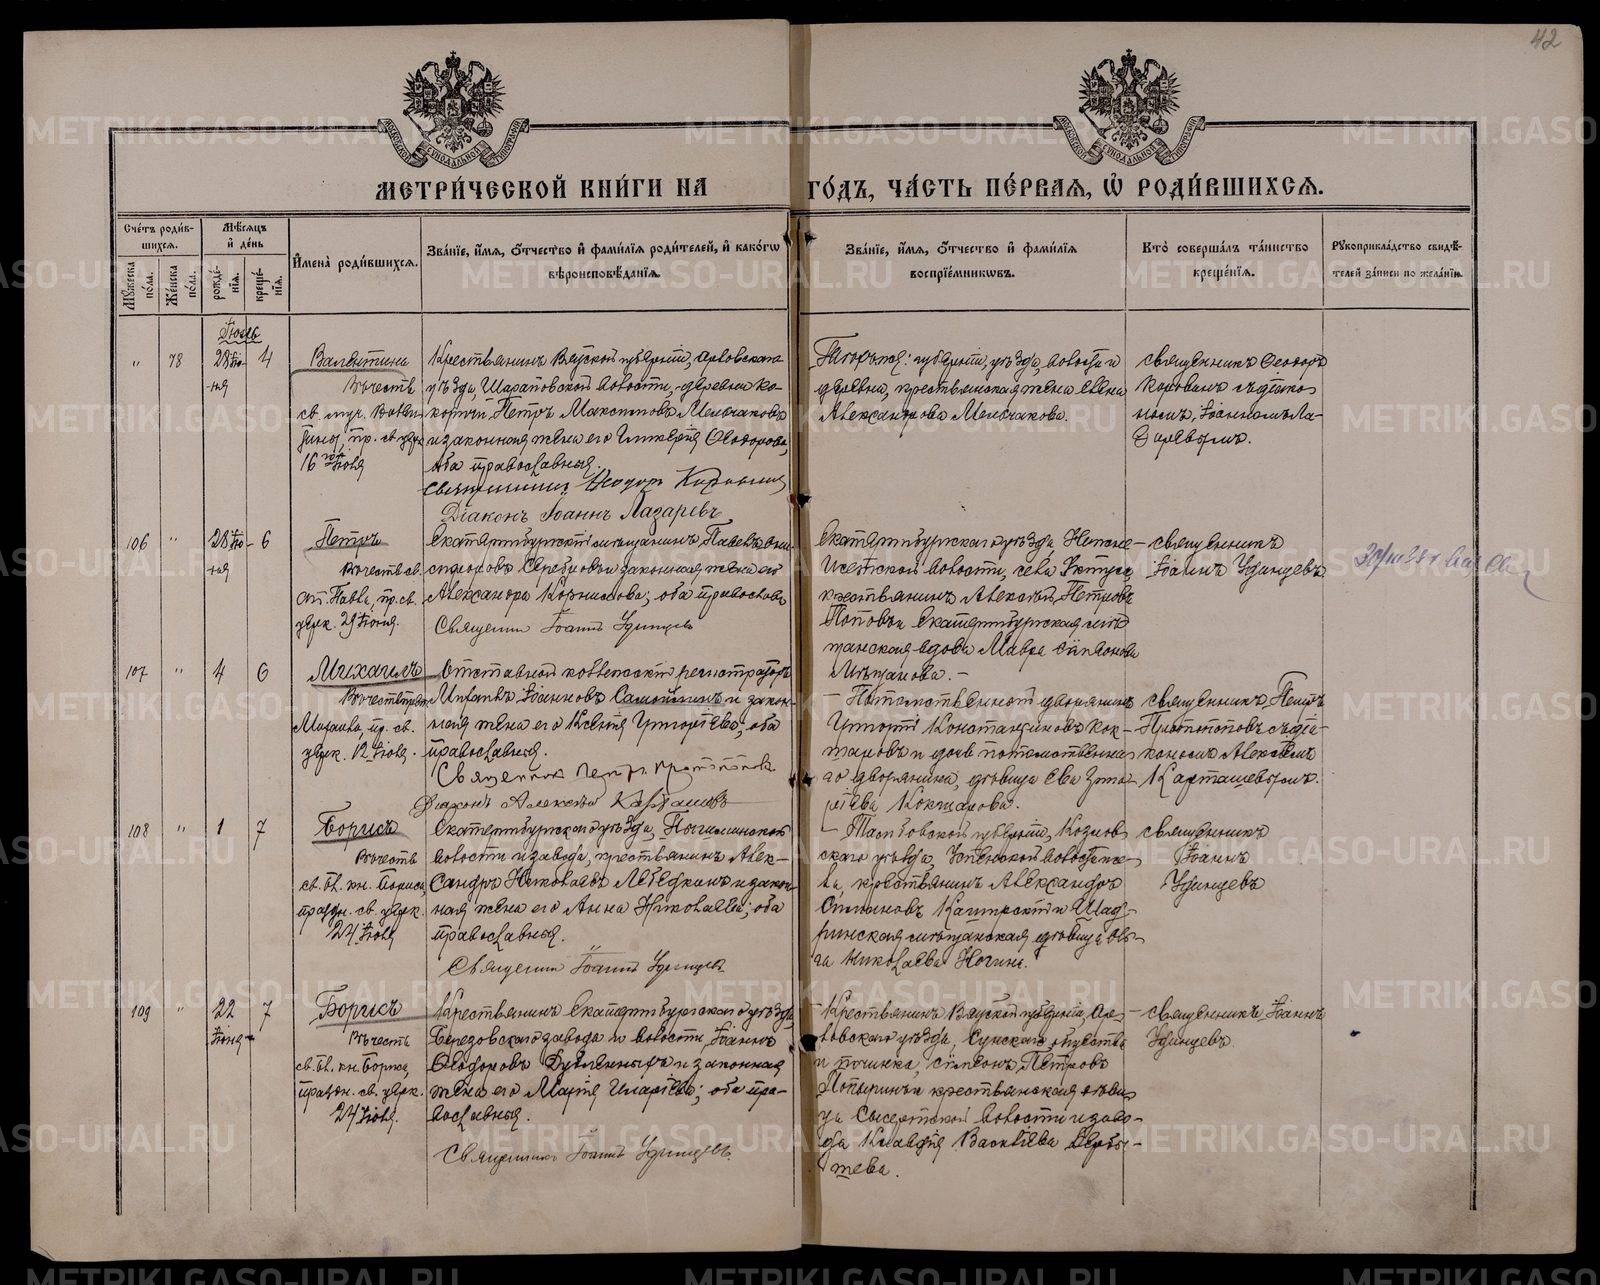 42
МЕТРИ́ЧЕСКОЙ КНИ́ГИ НА ГО́ДЪ, ЧА́СТЬ ПЕ́РВАЯ, Ѡ҆ РОДИ́ВШИХСЯ.
Сче́тъ роди́в-
шихся.
Мꙋ́жеска по́ла.
Же́нска по́ла.
Мѣ́сяцъ
и҆ де́нь
рожде́-
нїя.
креще́-
нїя.
И҆мена̀ роди́вшихся.
Зва́нїе, и҆́мя, ѻ҆́тчество и҆ фами́лїя роди́телей, и҆ како́гѡ
вѣроисповѣ́данїя.
Зва́нїе, и҆́мя, ѻ҆́тчество и҆ фами́лїя
воспрїе́мникѡвъ.
Кто̀ соверша́лъ та́инство
креще́нїя.
Рꙋкоприкла́дство свидѣ́-
телей за́писи по жела́нїю.
Іюль
" 78 28 Iю-
ня 4
Валентина
Въ честь
св. муч. Вален-
тины, пр. св. церк.
16 го Іюля
Крестьянинъ Вятской губерніи, Орловскаго
уѣзда, Шараповской волости, деревни Ко-
Петръ Максимовъ Мельчаковъ
и законная жена его Гликерія Ѳеодорова,
оба православные.
Священникъ Ѳеодоръ Коровинъ
Діаконъ Іоаннъ Лазаревъ
Той же губерніи, уѣзда, волости и
деревни, крестьянская жена Елена
Александрова Мельчакова.
священникъ Ѳеодоръ
Коровинъ съ діако-
номъ Іоанномъ Ла-
заревымъ.
106 " 28 Iю-
ня 6
Петръ
Въ честь св.
ап. Павла, пр. св.
церк. 29 Іюня.
Екатеринбургскій мѣщанинъ Павелъ
Серебровъ и законная жена его
Александра Корнилова; оба православн.
Священник Іоаннъ Удинцевъ
Екатеринбургскаго уѣзда, Нижне-
Исетской волости, села Уктуса,
крестьянинъ Алексѣй Петровъ
Поповъ и Екатеринбургская мѣ-
щанская вдова Мавра Симеонова
священникъ
Іоаннъ Удинцевъ
107 " 4 6
Михаилъ
Въ честь преп.
Михаила, пр. св.
церк. 12 Іюля.
Отставной коллежскій регистраторъ
Михаилъ Іоанновъ Самойлинъ и закон-
ная жена его Ксенія Григорьева; оба
православные.
Священник Петръ Протопоповъ
Діаконъ Алексѣй Карташевъ
Потомственный дворянинъ
Григорій Константиновъ Кок-
шаровъ и дочь потомственна-
го дворянина, дѣвица Ева Гри-
горьева Кокшарова.
священникъ Петръ
Протопоповъ съ діа-
кономъ Алексѣемъ
Карташевымъ.
108 " 1 7
Борисъ
Въ честь
св. бл. кн. Бориса,
праздн. св. церк.
24 Іюля
Екатеринбургскаго уѣзда,
волости и завода, крестьянинъ Алек-
сандръ Николаевъ Лебедкинъ и закон-
ная жена его Анна Николаева; оба
православные.
Священник Іоаннъ Удинцевъ
Тамбовской губерніи, Козлов-
скаго уѣзда, Успенской волости се-
ла, крестьянинъ Александръ
Каширскій и Шад-
ринская мѣщанская дѣвица Оль-
га Николаева Ногина.
священникъ
Іоаннъ
Удинцевъ
109 " 22
Іюня 7
Борисъ
Въ честь
св. бл. кн. Бориса,
праздн. св. церк.
24 Іюля.
Крестьянинъ Екатеринбургскаго уѣзда,
Березовскаго завода и волости, Іоаннъ
Ѳеодоровъ и законная
жена его Марія Георгіева; оба пра-
вославные.
Священникъ Іоаннъ Удинцевъ.
Крестьянинъ Вятской губерніи, Ор-
ловскаго уѣзда, общества
и починка, Симеонъ Петровъ
и крестьянская дѣви-
ца Сысертской волости и заво-
да Клавдія Васильева
священникъ Іоаннъ
Удинцевъ.
METRIKI.GASO-URAL.RU